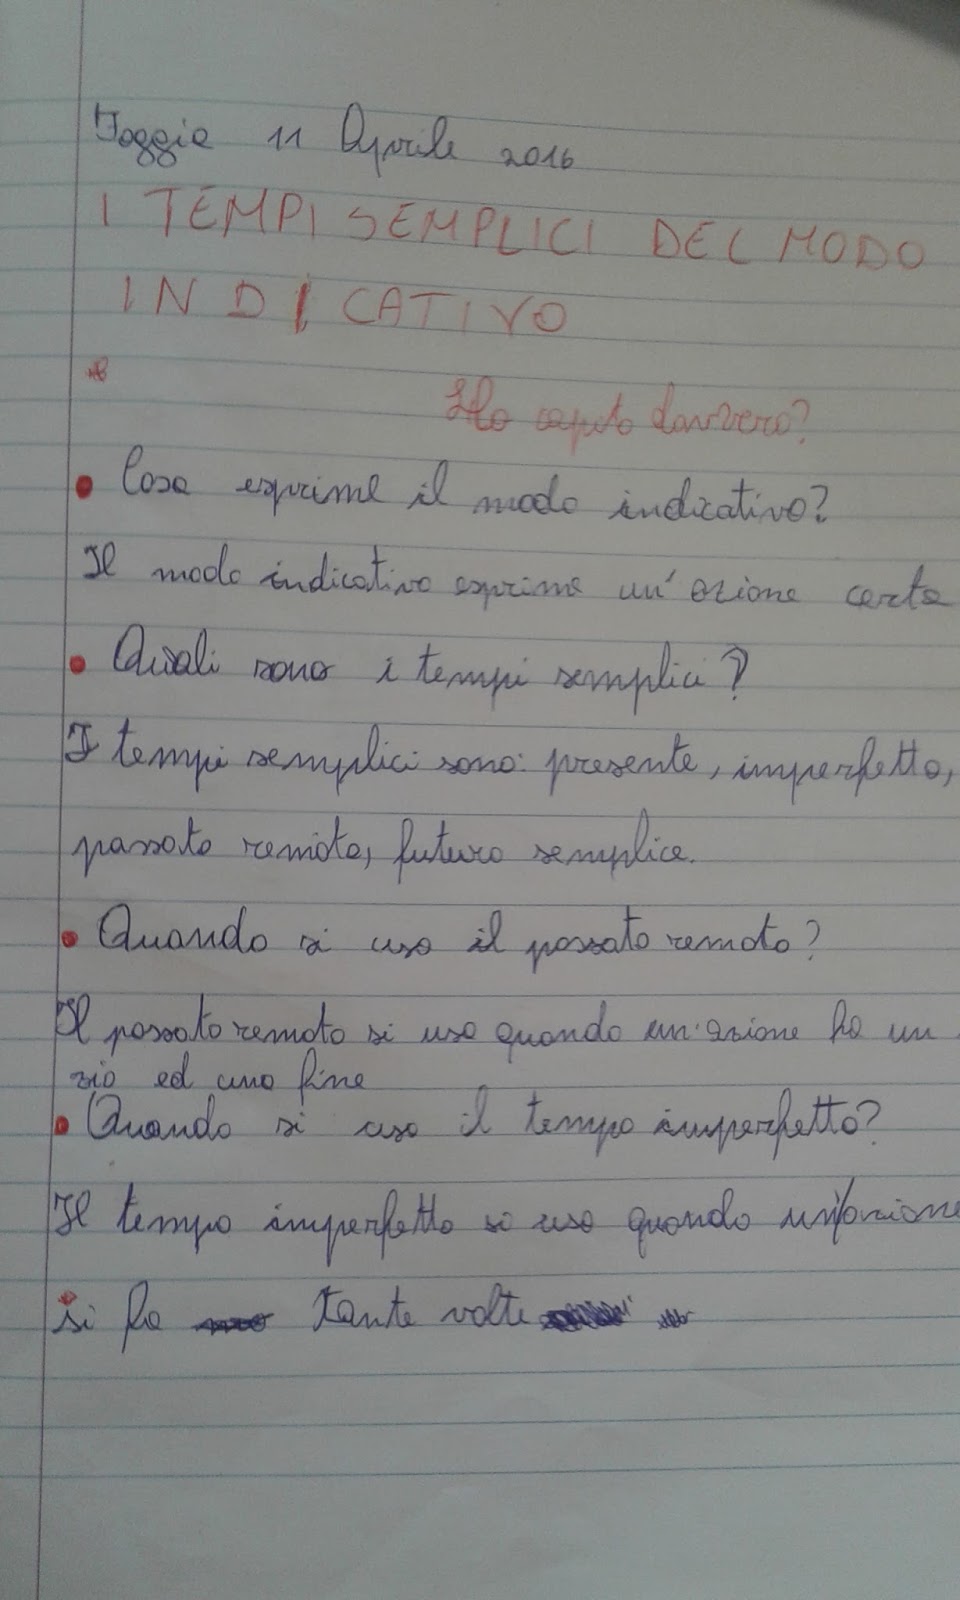 Foggia 11 Aprile 2016
I TEMPI SEMPLICI DEL MODO
INDICATIVO
Ho capito davvero?
• Cosa esprime il modo indicativo?
Il modo indicativo esprime un'azione certa
• Quali sono i tempi semplici?
I tempi semplici sono: presente, imperfetto,
passato remoto, futuro semplice.
• Quando si usa il passato remoto?
Il passato remoto si usa quando un'azione ha un
zio ed una fine
• Quando si usa il tempo imperfetto?
Il tempo imperfetto si usa quando un'azione
si fa tante volte